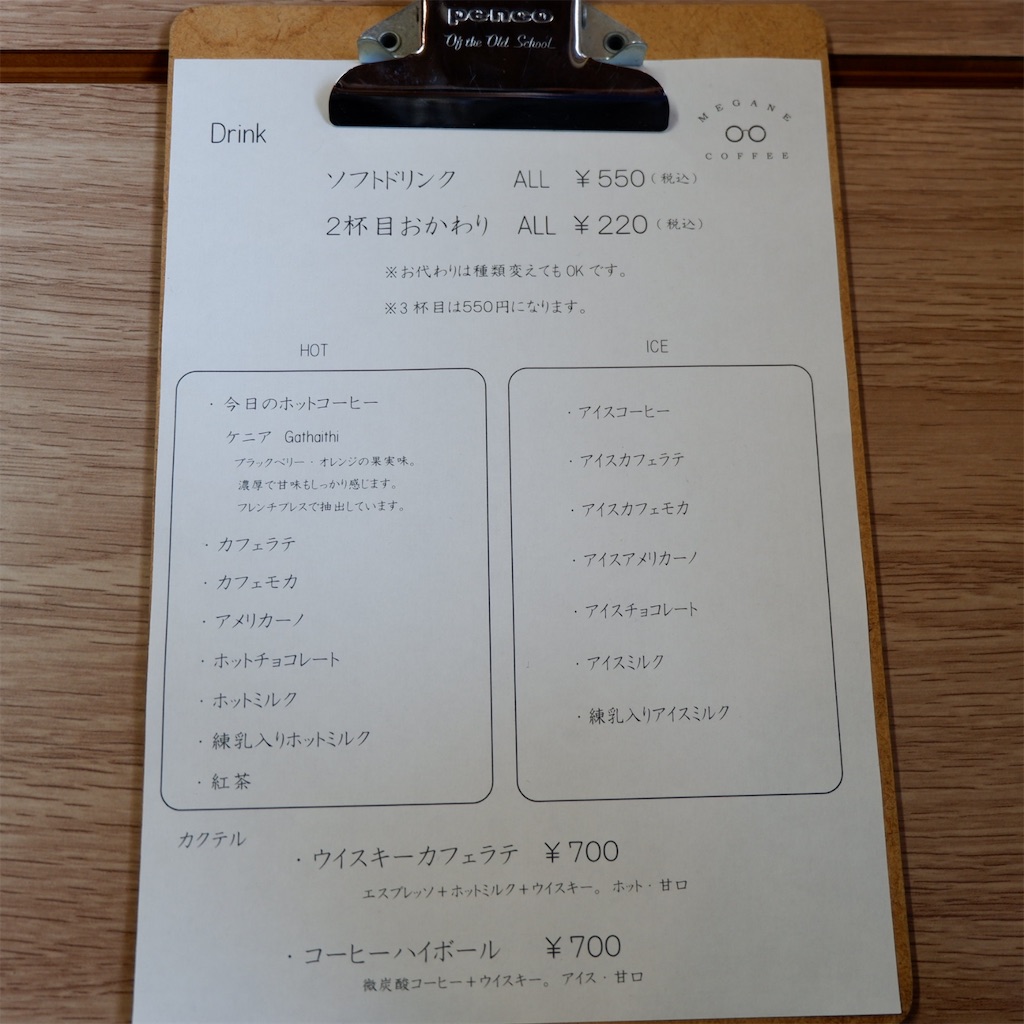 penco
Of the Old School
MEGANE
COFFEE
Drink
ソフトドリンク ALL ¥550（税込）
2杯目おかわり ALL ¥220（税込）
※お代わりは種類変えてもOKです。
※3杯目は550円になります。
HOT
・今日のホットコーヒー
ケニア Gathaithi
ブラックベリー・オレンジの果実味。
濃厚で甘味もしっかり感じます。
フレンチプレスで抽出しています。
・カフェラテ
・カフェモカ
・アメリカーノ
・ホットチョコレート
・ホットミルク
・練乳入りホットミルク
・紅茶
ICE
・アイスコーヒー
・アイスカフェラテ
・アイスカフェモカ
・アイスアメリカーノ
・アイスチョコレート
・アイスミルク
・練乳入りアイスミルク
カクテル
・ウイスキーカフェラテ ¥700
エスプレッソ＋ホットミルク＋ウイスキー。 ホット・甘口
・コーヒーハイボール ¥700
微炭酸コーヒー＋ウイスキー。 アイス・甘口